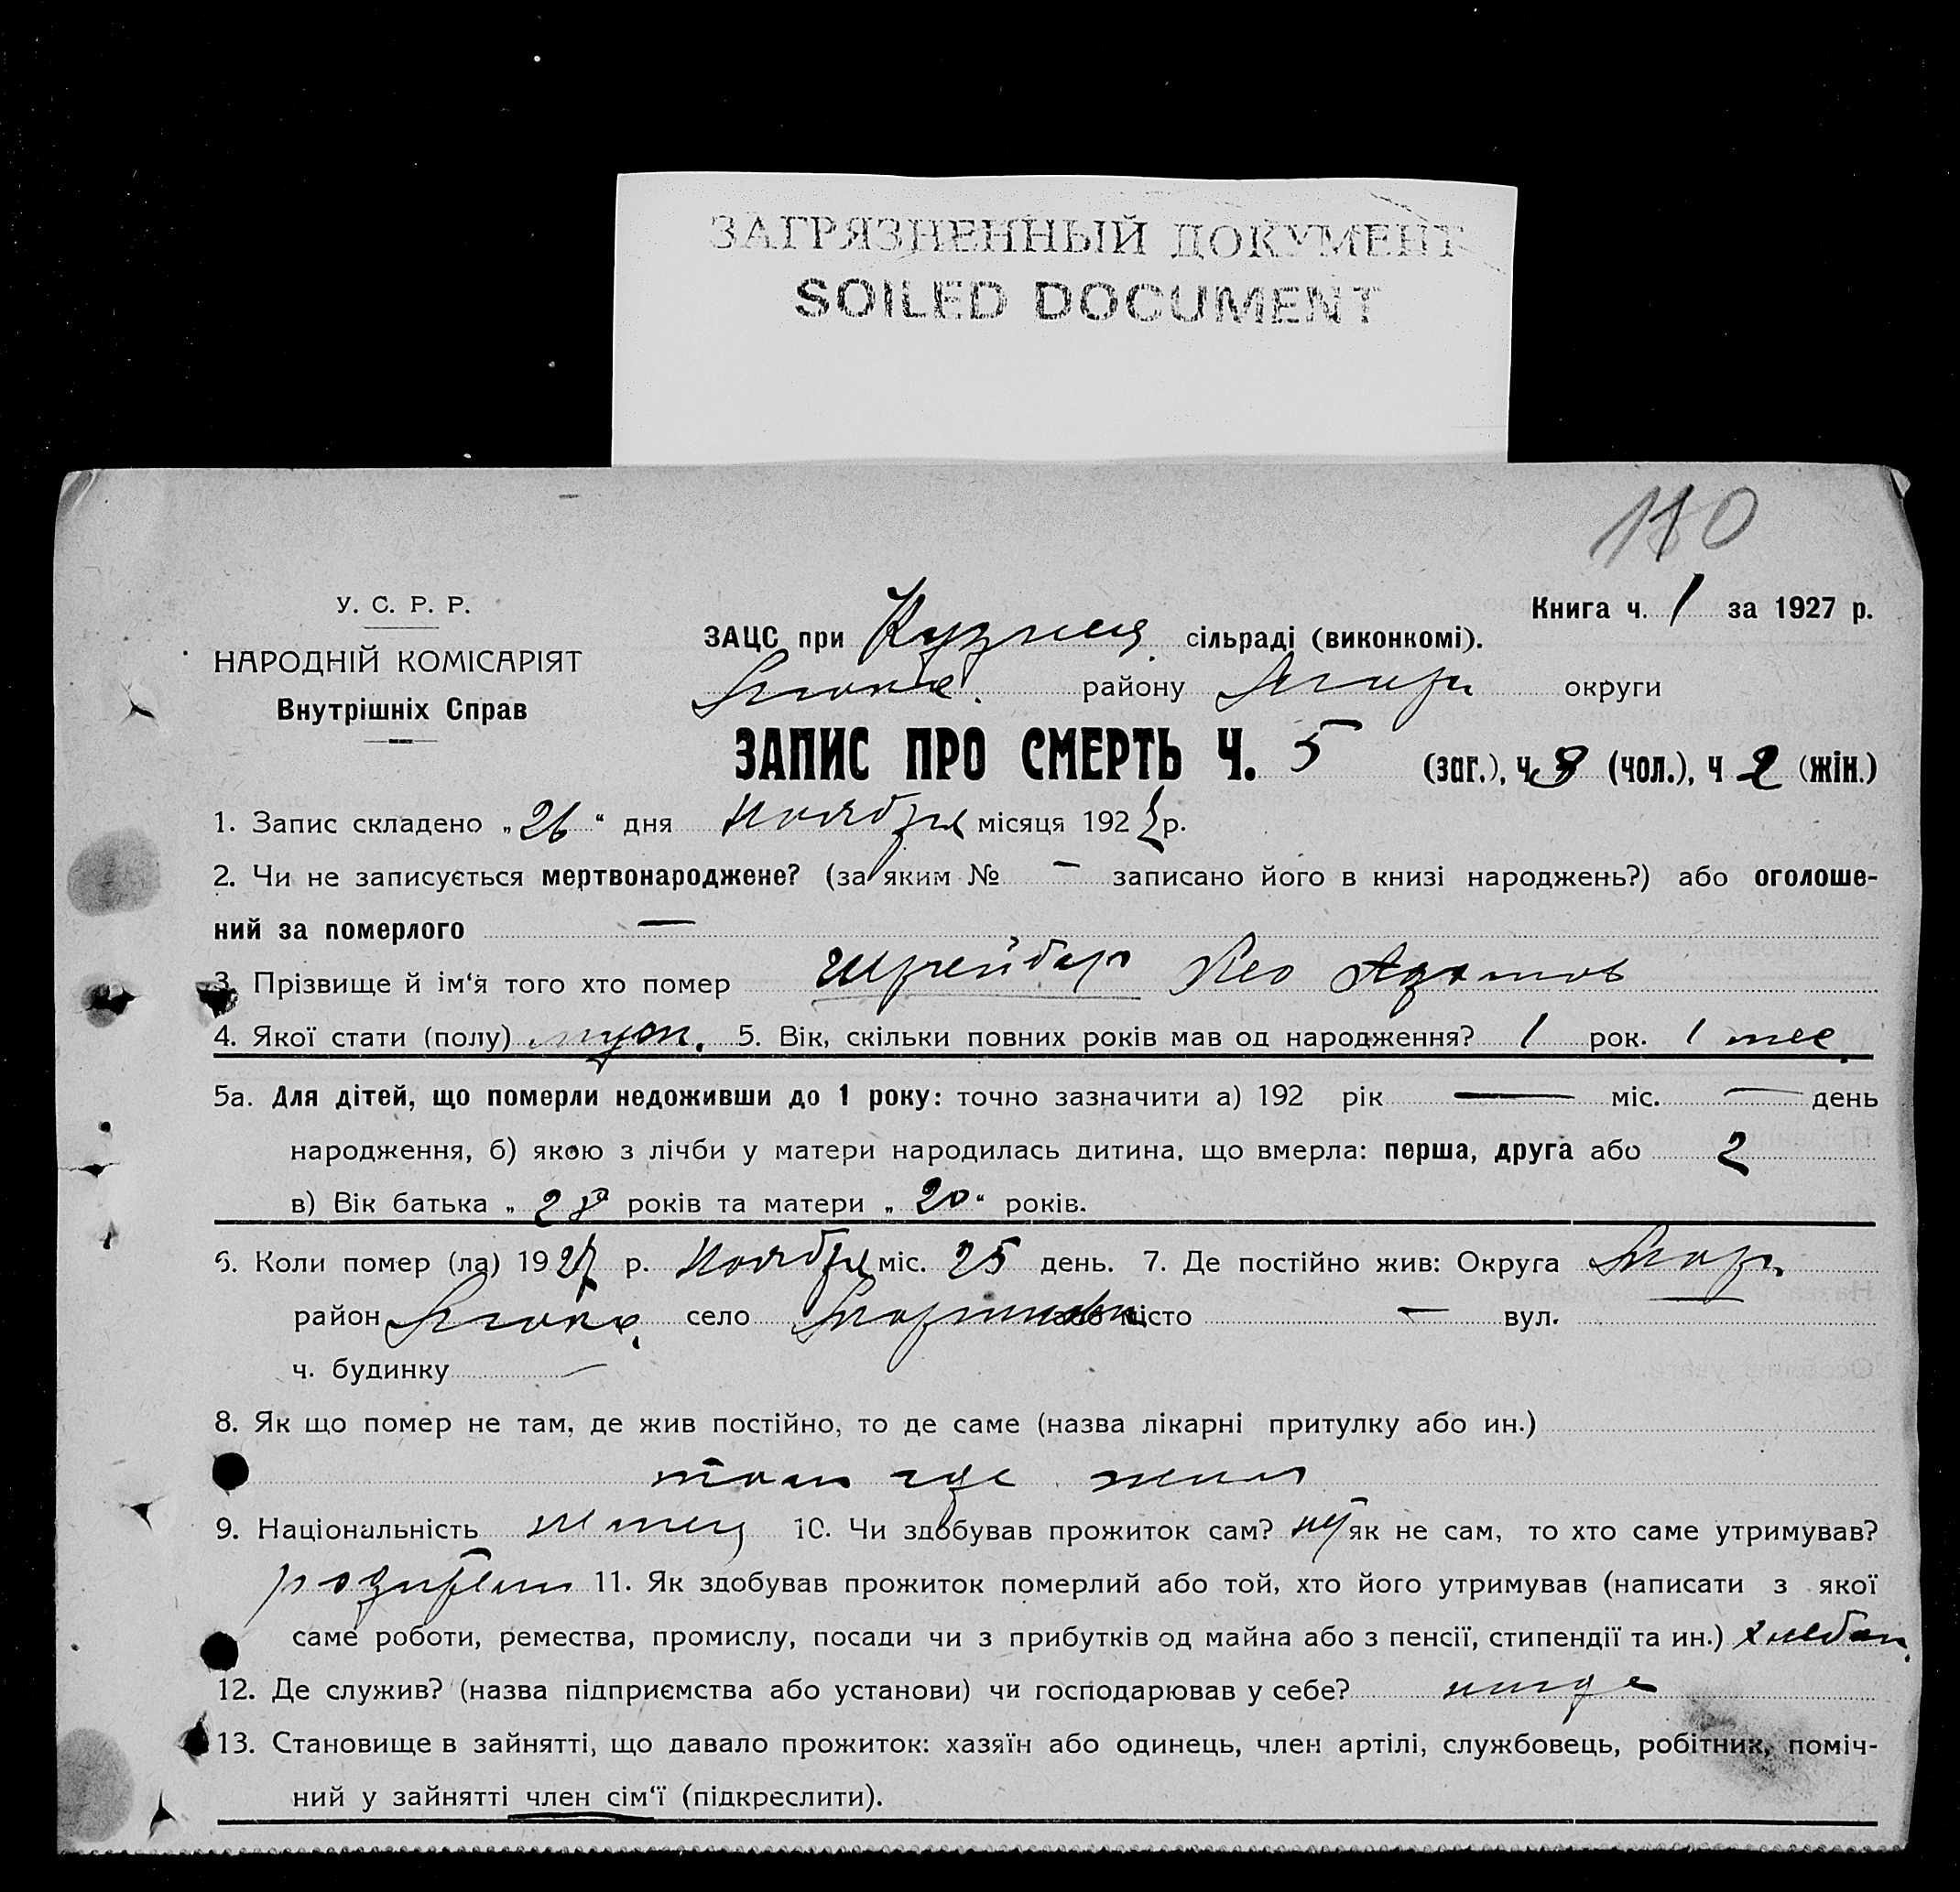 ЗАГРЯЗНЕННЫЙ ДОКУМЕНТ
SOILED DOCUMENT
У. С. Р. Р.
НАРОДНІЙ КОМІСАРІЯТ
Внутрішніх Справ
Книга ч. 1 за 1927 р.
ЗАЦС при сільраді (виконкомі).
району округи
ЗАПИС ПРО СМЕРТЬ Ч. 5 (заг.), ч. 3 (чол.), ч 2 (жін.)
1. Запис складено „26“ дня Ноября місяця 1927 р.
2. Чи не записується мертвонароджене? (за яким № — записано його в книзі народжень?) або оголоше-
ний за померлого —
3. Прізвище й ім‘я того хто помер Шрейбер Лео
4. Якої стати (полу) муж. 5. Вік, скільки повних років мав од народження? 1 рок. 1 мес.
5а. Для дітей, що померли недоживши до 1 року: точно зазначити а) 192 рік — міс. — день
народження, б) якою з лічби у матери народилась дитина, що вмерла: перша, друга або 2
в) Вік батька „28 років та матери „20“ років.
6. Коли помер (ла) 1927 р. Ноября міс. 25 день. 7. Де постійно жив: Округа
район село або місто — вул.
ч. будинку —
8. Як що помер не там, де жив постійно, то де саме (назва лікарні притулку або ин.)
там где жил
9. Національність немец 10. Чи здобував прожиток сам? як не сам, то хто саме утримував?
родители 11. Як здобував прожиток померлий або той, хто його утримував (написати з якої
саме роботи, ремества, промислу, посади чи з прибутків од майна або з пенсії, стипендії та ин.) хлебоп.
12. Де служив? (назва підприємства або установи) чи господарював у себе? нигде
13. Становище в зайнятті, що давало прожиток: хазяїн або одинець, член артілі, службовець, робітник, поміч-
ний у зайнятті член сім‘ї (підкреслити).